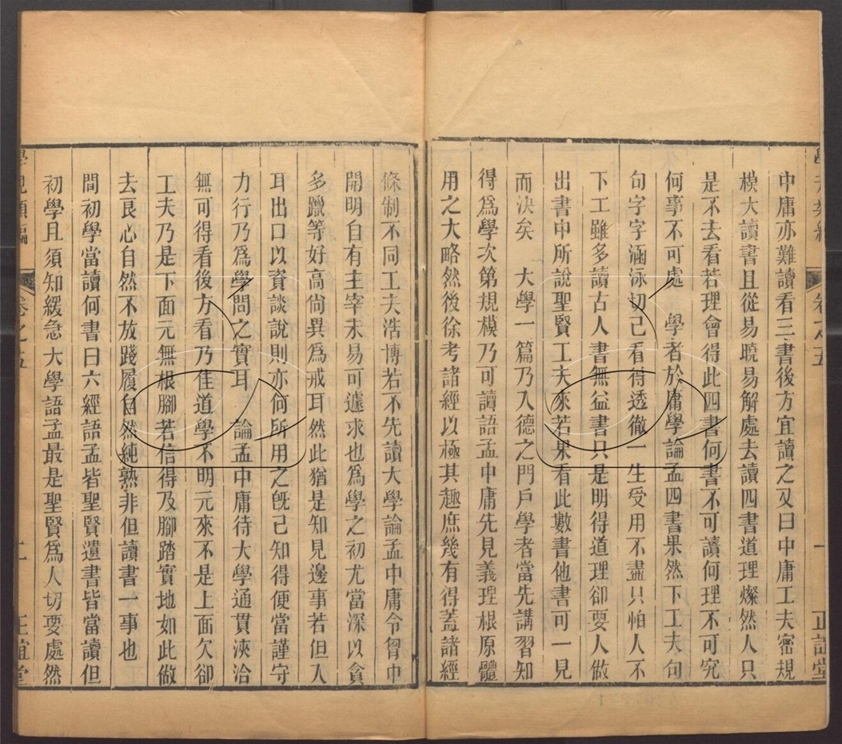 中庸亦難讀看三書後方宜讀之又曰中庸工夫密規
模大讀書且從易曉易解處去讀四書道理燦然人只
是不去看若理會得此四書何書不可讀何理不可究
何事不可處　學者於庸學論孟四書果然下工夫句
句字字涵泳切己看得透徹一生受用不盡只怕人不
下工雖多讀古人書無益書只是明得道理卻要人做
出書中所說聖賢工夫來若果看此數書他書可一見
而決矣　大學一篇乃入德之門戶學者當先講習知
得爲學次第規模乃可讀語孟中庸先見義理根原體
用之大略然後徐考諸經以極其趣庶幾有得蓋諸經
條制不同工夫浩博若不先讀大學論孟中庸令胷中
開明自有主宰未易可遽求也爲學之初尤當深以貪
多躐等好高尙異爲戒耳然此猶是知見邊事若但入
耳出口以資談說則亦何所用之旣已知得便當謹守
力行乃爲學問之實耳　論孟中庸待大學通貫浹洽
無可得看後方看乃佳道學不明元來不是上面欠卻
工夫乃是下面元無根腳若信得及腳踏實地如此做
去良心自然不放踐履自然純熟非但讀書一事也
間初學當讀何書曰六經語孟皆聖賢遺書皆當讀但
初學且須知緩急大學語孟最是聖賢爲人切要處然
卷之五
一
正誼堂
卷之五
二
正誼堂